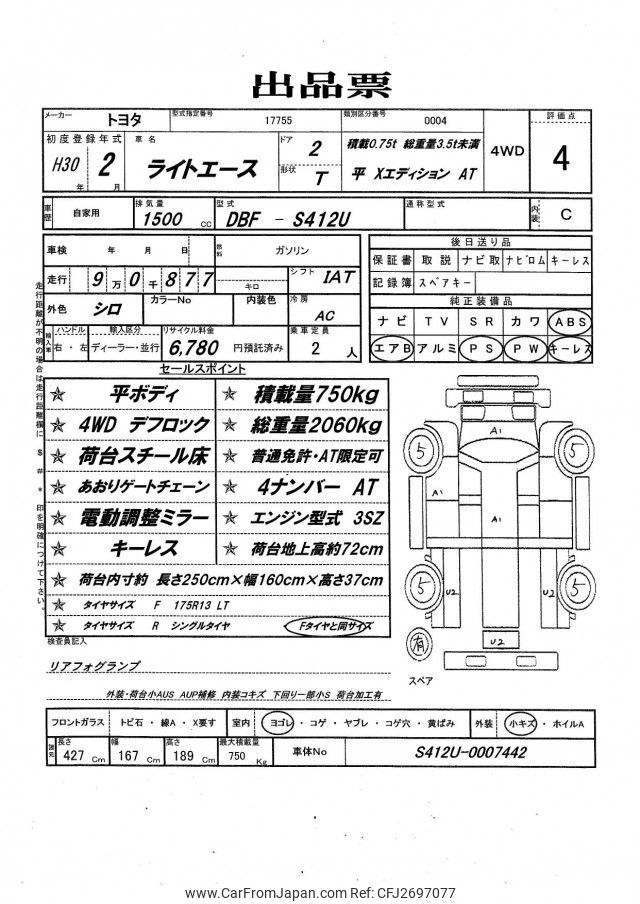 出品票
メーカー トヨタ 型式指定番号 17755 類別区分番号 0004 4WD 評価点 4
初度登録年式 H30年 2月 車名 ライトエース ドア 2 形状 T 積載0.75t 総重量3.5t未満
平 Xエディション AT
車歴 自家用 排気量 1500 cc 型式 DBF - S412U 通称型式 内装 C
車検 年 月 日 燃料 ガソリン
走行 9万0千877 キロ シフト IAT
外色 シロ カラーNo 内装色 冷房 AC
輸入車 ハンドル 右・左 輸入区分 ディーラー・並行 リサイクル料金 6,780 円預託済み 乗車定員 2 人
後日送り品
保証書 取説 ナビ取 ナビロム キーレス
記録簿 スペアキー
純正装備品
ナビ TV SR カワ ABS
エアB アルミ PS PW キーレス
セールスポイント
☆ 平ボディ ☆ 積載量750kg
☆ 4WD デフロック ☆ 総重量2060kg
☆ 荷台スチール床 ☆ 普通免許・AT限定可
☆ あおりゲートチェーン ☆ 4ナンバー AT
☆ 電動調整ミラー ☆ エンジン型式 3SZ
☆ キーレス ☆ 荷台地上高約72cm
☆ 荷台内寸約 長さ250cm×幅160cm×高さ37cm
☆ タイヤサイズ F 175R13 LT
☆ タイヤサイズ R シングルタイヤ Fタイヤと同サイズ
走行距離が不明の場合は走行距離欄に $ # * 印を明確につけて下さい。
A1
5 5
A1 A1
5 5
U2 U2
U2
有
スペア
検査員記入
リアフォグランプ
外装・荷台小AUS AUP補修 内装コキズ 下回り一部小S 荷台加工有
フロントガラス トビ石・線A・X要す 室内 ヨゴレ・コゲ・ヤブレ・コゲ穴・黄ばみ 外装 小キズ・ホイルA
諸元 長さ 427 Cm 幅 167 Cm 高さ 189 Cm 最大積載量 750 Kg 車体No S412U-0007442
www.CarFromJapan.com Ref: CFJ2697077